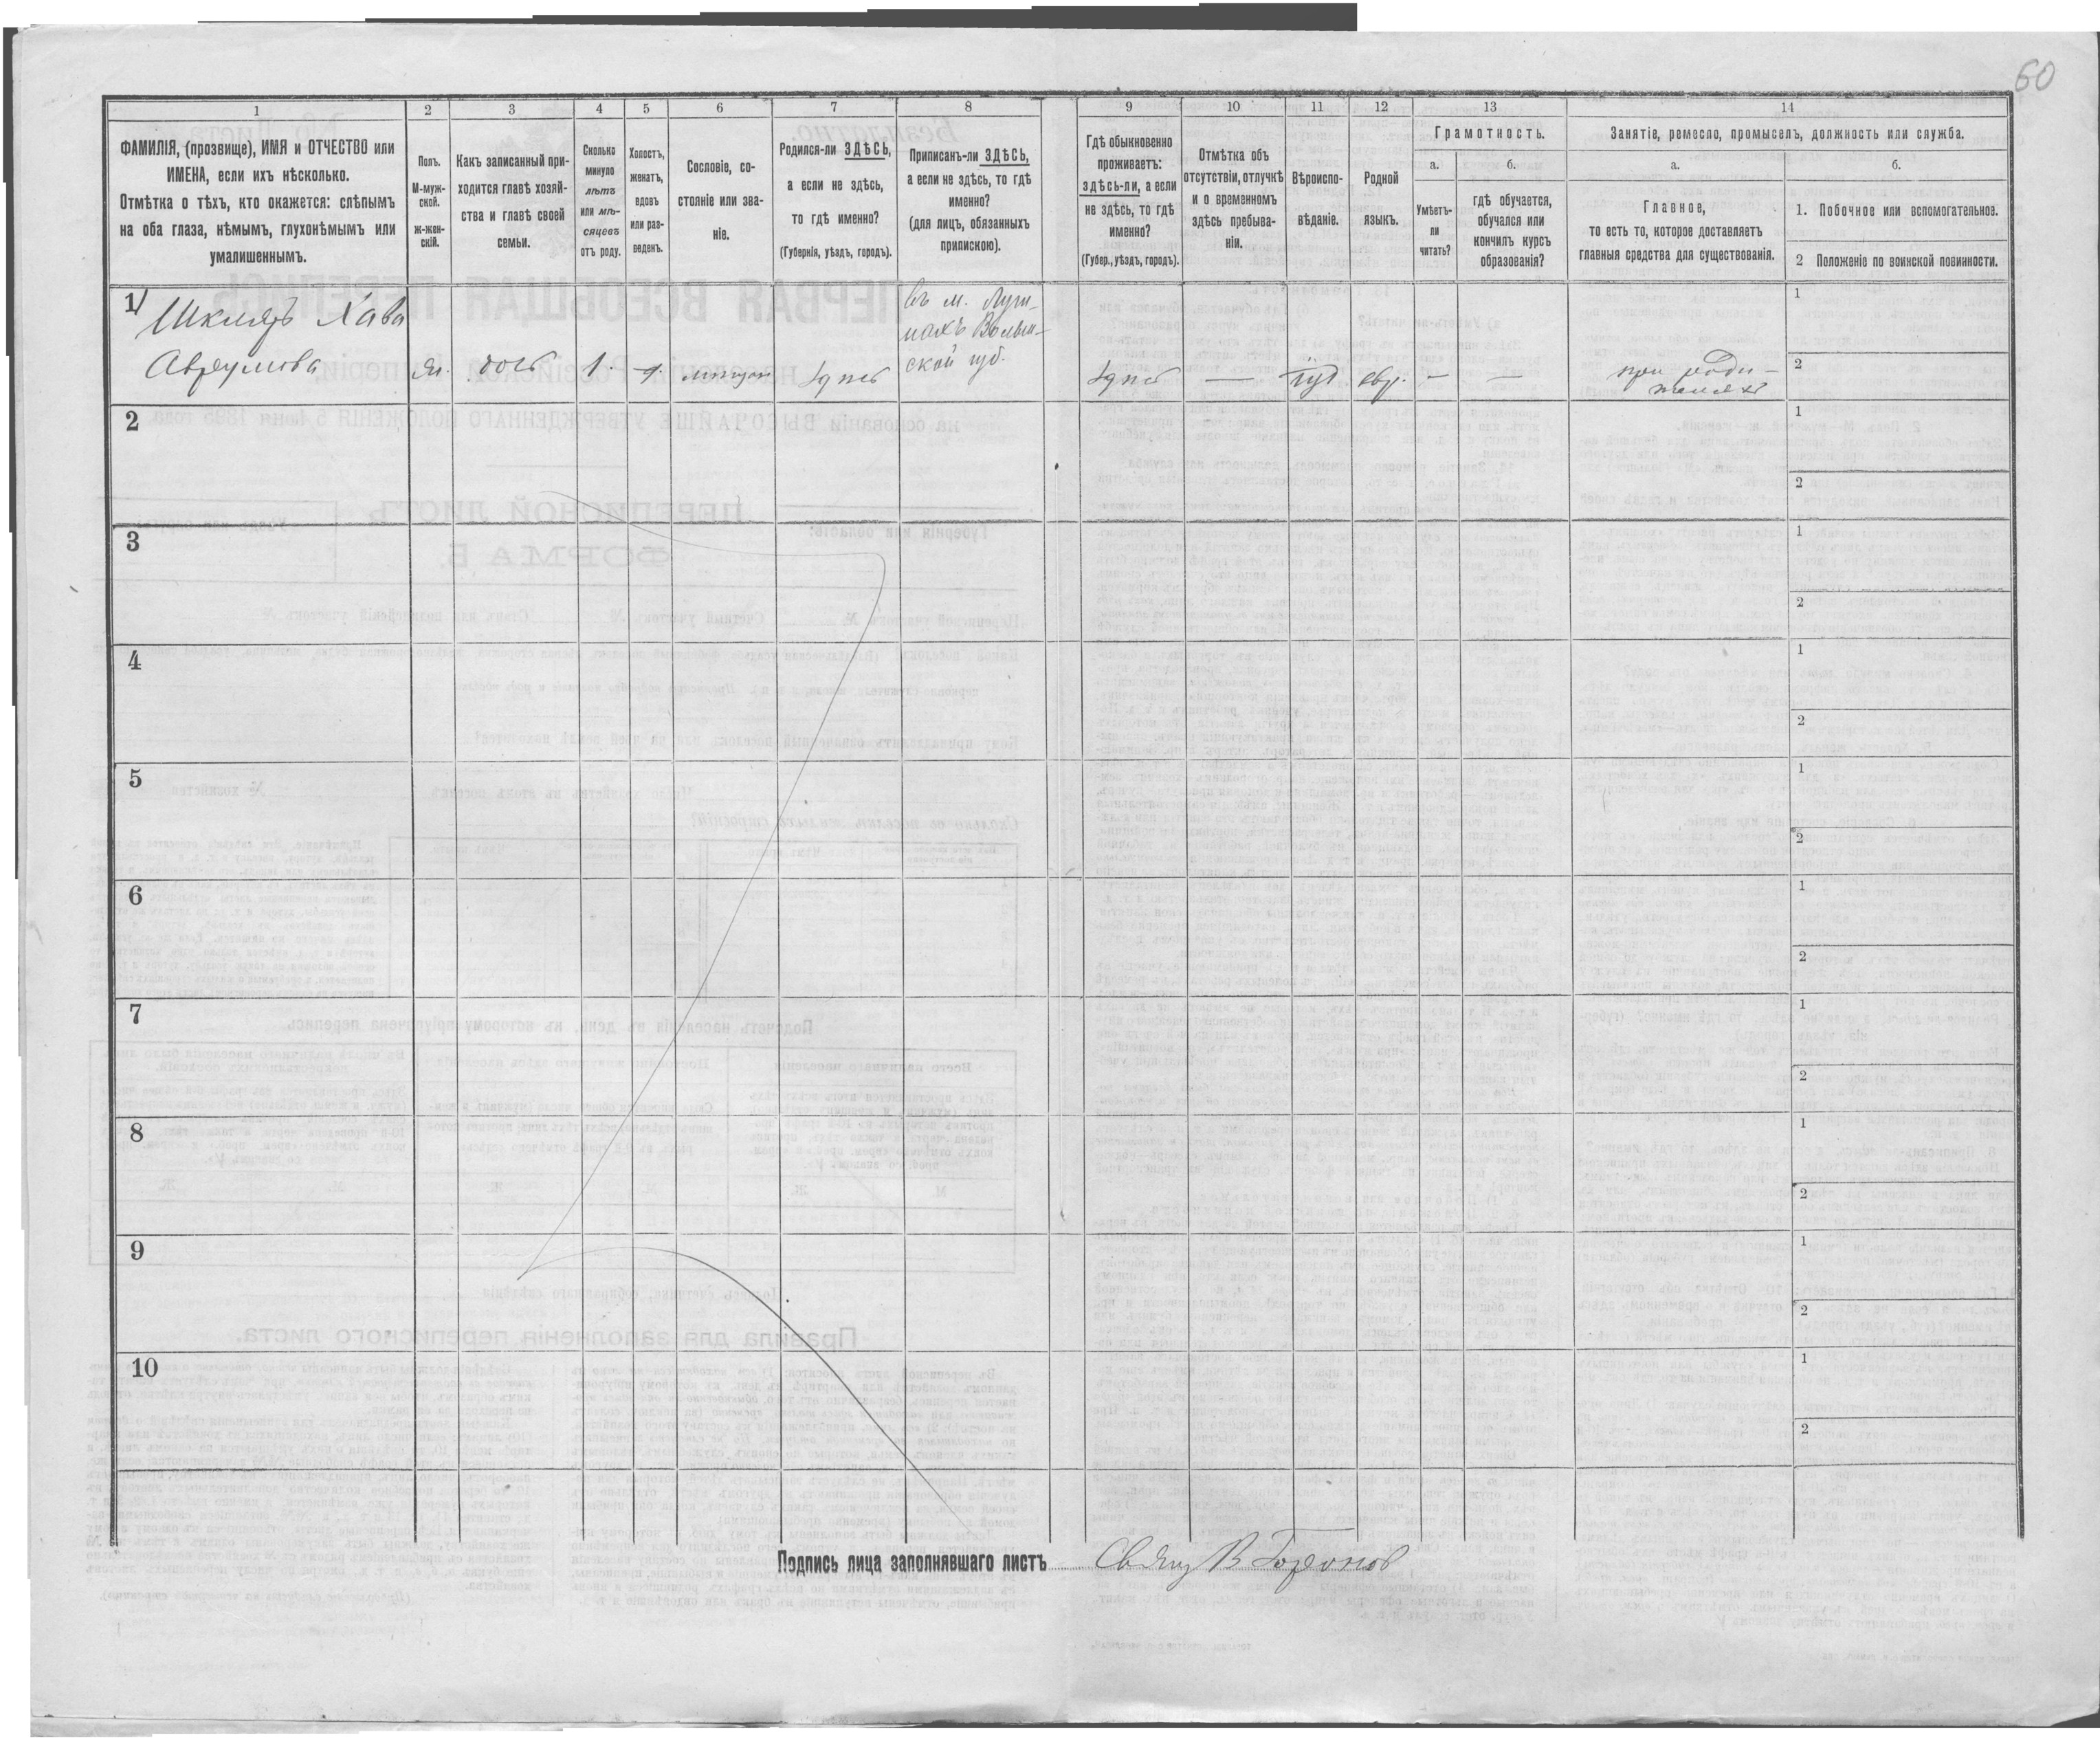 60
1
2
3
4
5
6
7
8
9
10
11
12
13
14
ФАМИЛІЯ, (прозвище), ИМЯ и ОТЧЕСТВО или
ИМЕНА, если ихъ нѣсколько.
Отмѣтка о тѣхъ, кто окажется: слѣпымъ
на оба глаза, нѣмымъ, глухонѣмымъ или
умалишеннымъ.
Полъ.
М-муж-
ской.
ж-жен-
скій.
Какъ записанный при-
ходится главѣ хозяй-
ства и главѣ своей
семьи.
Сколько
минуло
лѣтъ
или мѣ-
сяцевъ
отъ роду.
Холостъ,
женатъ,
вдовъ
или раз-
веденъ.
Сословіе, со-
стояніе или зва-
ніе.
Родился-ли ЗДѢСЬ,
а если не здѣсь,
то гдѣ именно?
(Губернія, уѣздъ, городъ).
Приписанъ-ли ЗДѢСЬ,
а если не здѣсь, то гдѣ
именно?
(для лицъ, обязанныхъ
припискою).
Гдѣ обыкновенно
проживаетъ:
здѣсь-ли, а если
не здѣсь, то гдѣ
именно?
(Губер., уѣздъ, городъ).
Отмѣтка объ
отсутствіи, отлучкѣ
и о временномъ
здѣсь пребыва-
ніи.
Вѣроиспо-
вѣданіе.
Родной
языкъ.
Грамотность.
а.
Умѣетъ-
ли
читать?
б.
гдѣ обучается,
обучался или
кончилъ курсъ
образованія?
Занятіе, ремесло, промыселъ, должность или служба.
а.
Главное,
то есть то, которое доставляетъ
главныя средства для существованія.
б.
1. Побочное или вспомогательное.
2 Положеніе по воинской повинности.
1
Шкляръ Хава
Аврумова
дочь
1.
здѣсь
въ м. Луги-
нахъ Волын-
ской губ.
здѣсь
—
іуд
евр.
—
—
при роди-
теляхъ
1
2
2
1
2
3
1
2
4
1
2
5
1
2
6
1
2
7
1
2
8
1
2
9
1
2
10
1
2
Подпись лица заполнявшаго листъ
Свящ В